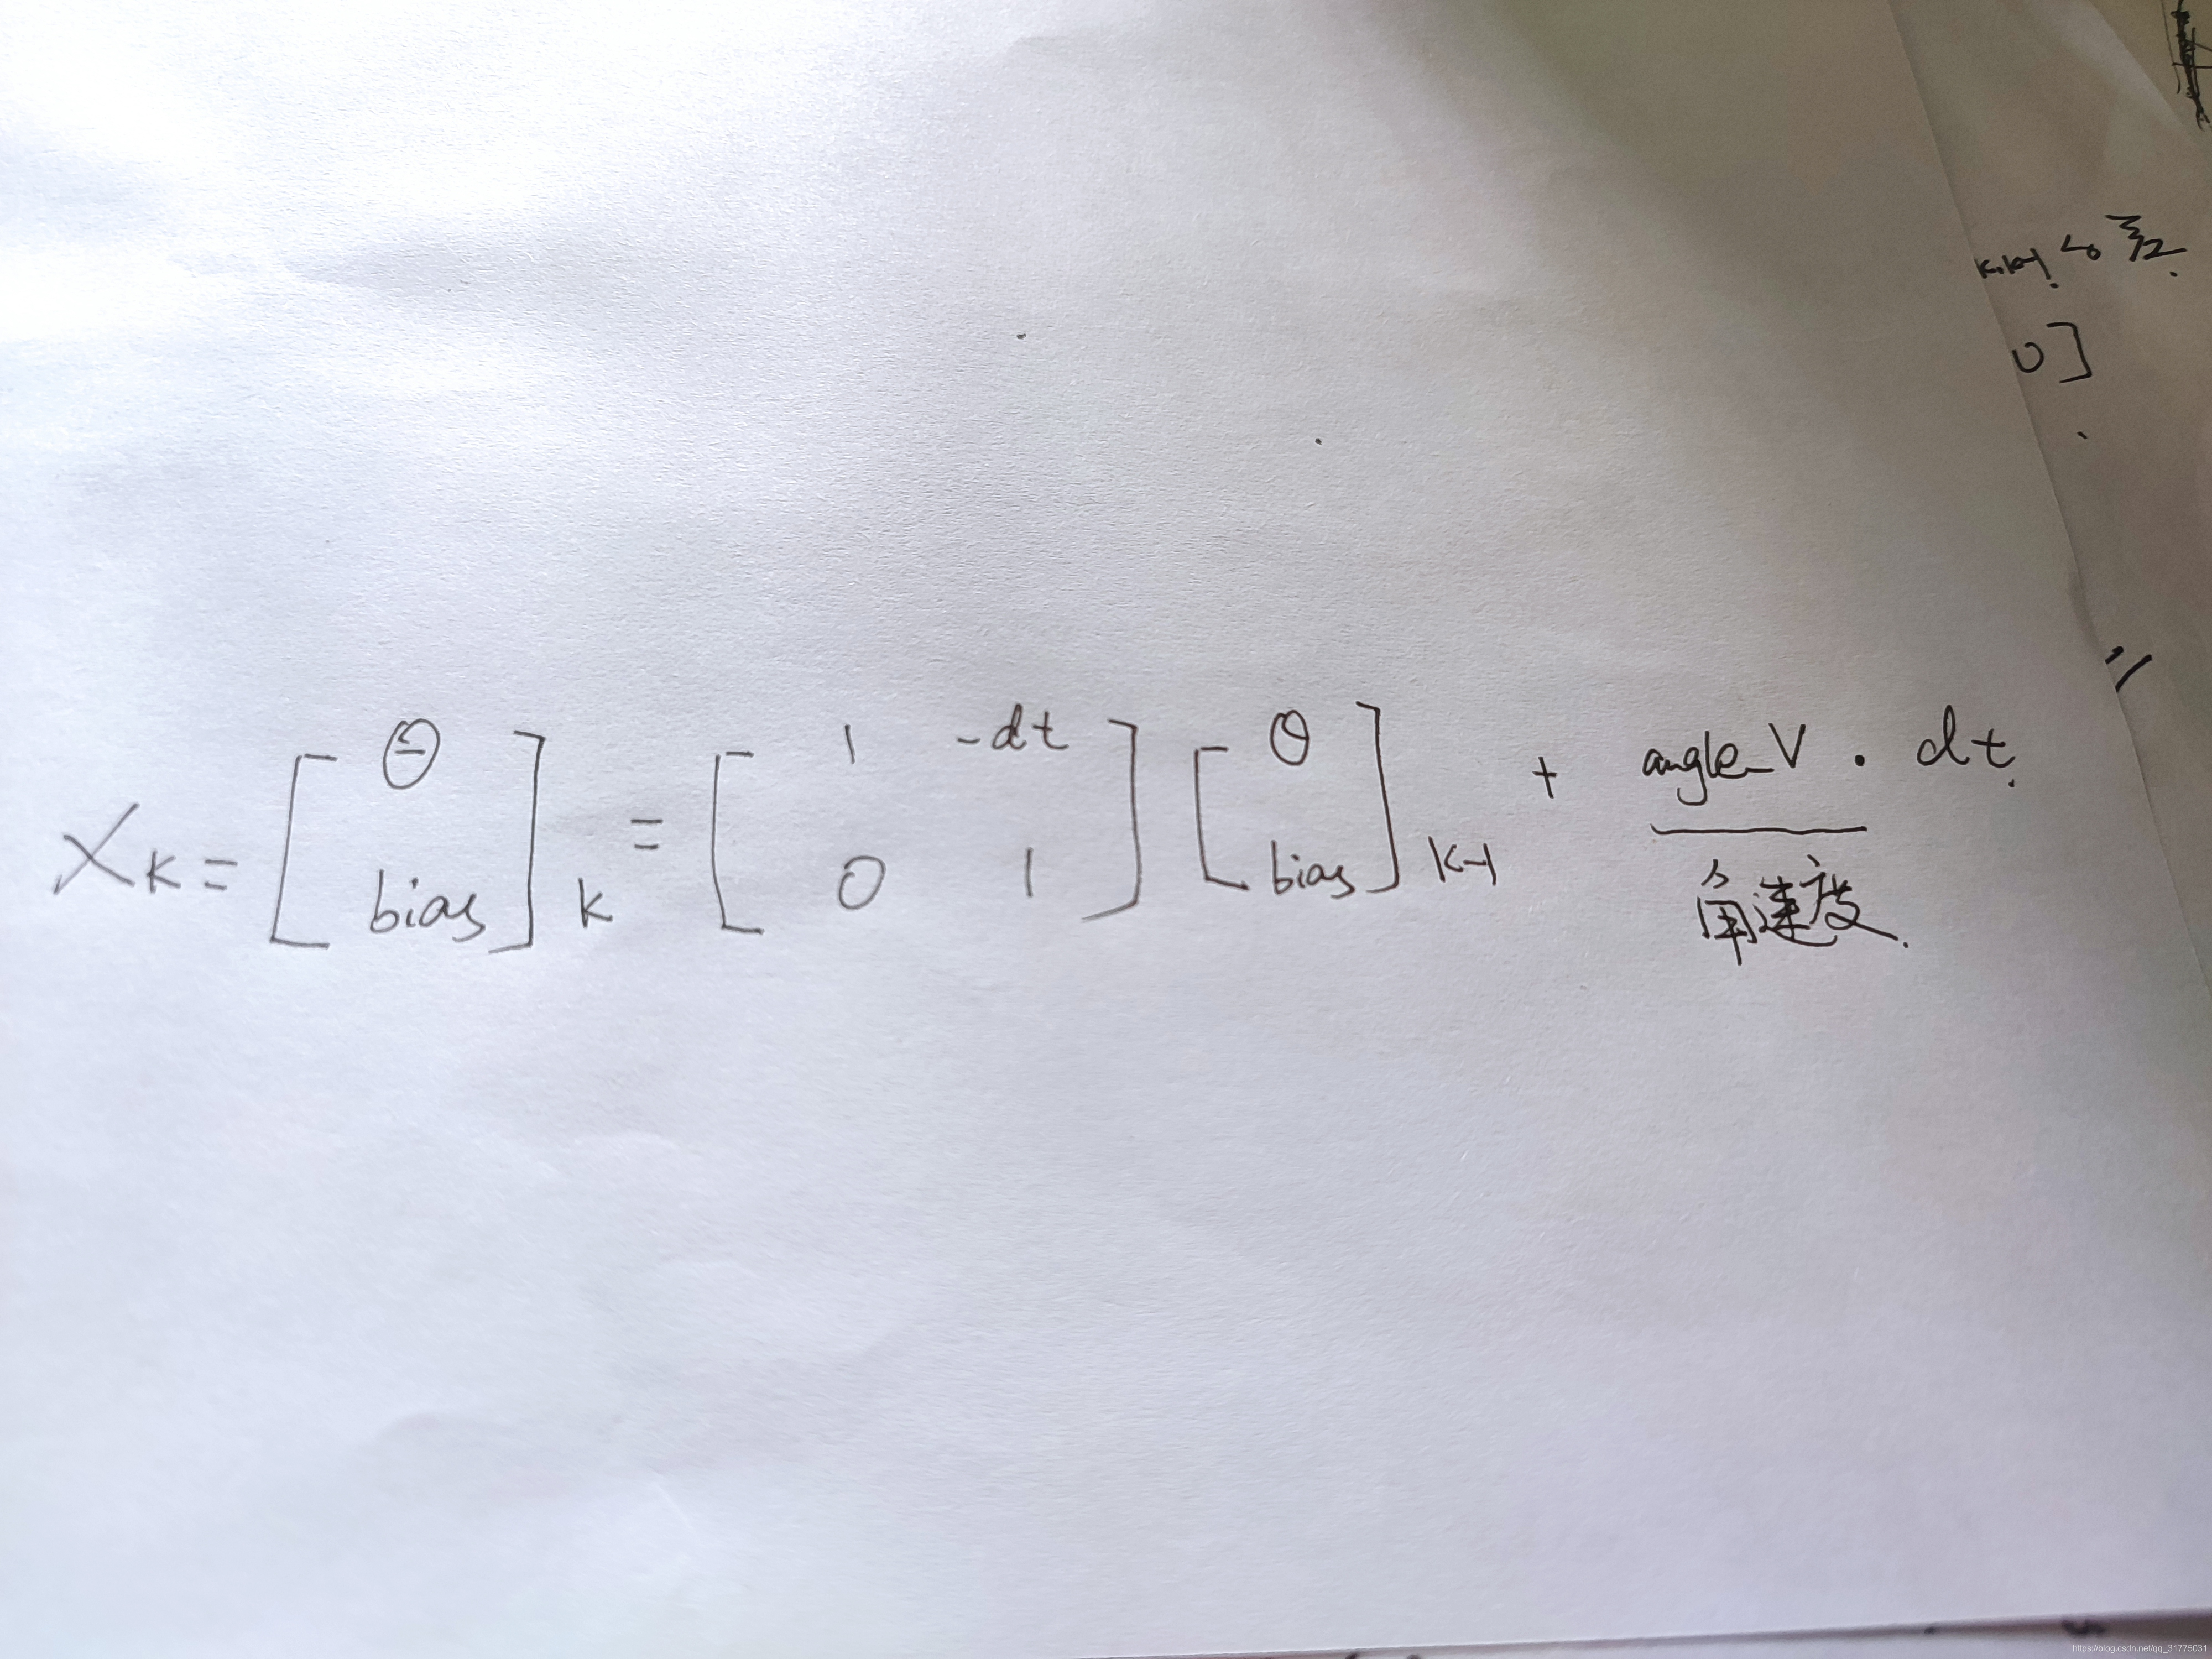 X_K = [ θ bias ]_K = [ 1 -dt 0 1 ] [ θ bias ]_K-1 + angle_V · dt.
角速度.
0]
https://blog.csdn.net/qq_31775031